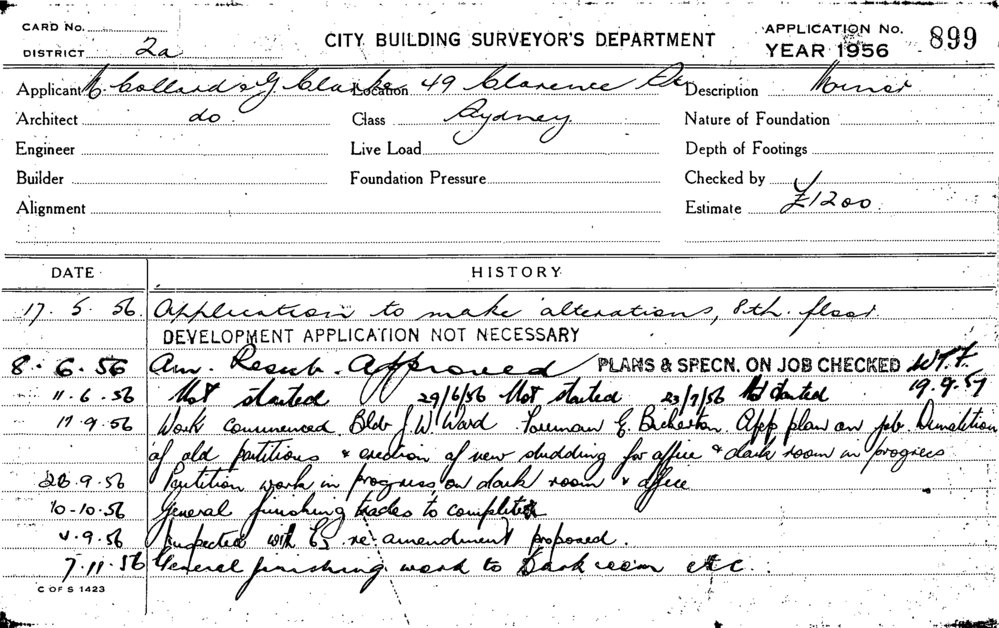 CARD No.
DISTRICT 2a
CITY BUILDING SURVEYOR'S DEPARTMENT
APPLICATION No. 899
YEAR 1956
Applicant H. Collard & G Clarke Location 49 Clarence St Description Minor
Architect do Class Sydney Nature of Foundation
Engineer Live Load Depth of Footings
Builder Foundation Pressure Checked by
Alignment Estimate £1200
DATE HISTORY
17. 5. 56. Application to make alterations, 8th. floor
DEVELOPMENT APPLICATION NOT NECESSARY
8. 6. 56 Am. Resub. Approved PLANS & SPECN. ON JOB CHECKED W.T.F.
11. 6. 56 Not started 29/6/56 Not started 23/7/56 Not started 19.9.57
17. 9. 56 Work commenced. Bldr J. W. Ward Foreman E. Bickerton. App plan on job. Demolition
of old partitions & erection of new studding for office & dark room in progress
26. 9. 56 Partition work in progress on dark room & office
10-10-56 General finishing trades to complete
4. 9. 56 Inspected with re amendment proposed.
7. 11. 56 General finishing work to Dark room etc.
C OF S 1423